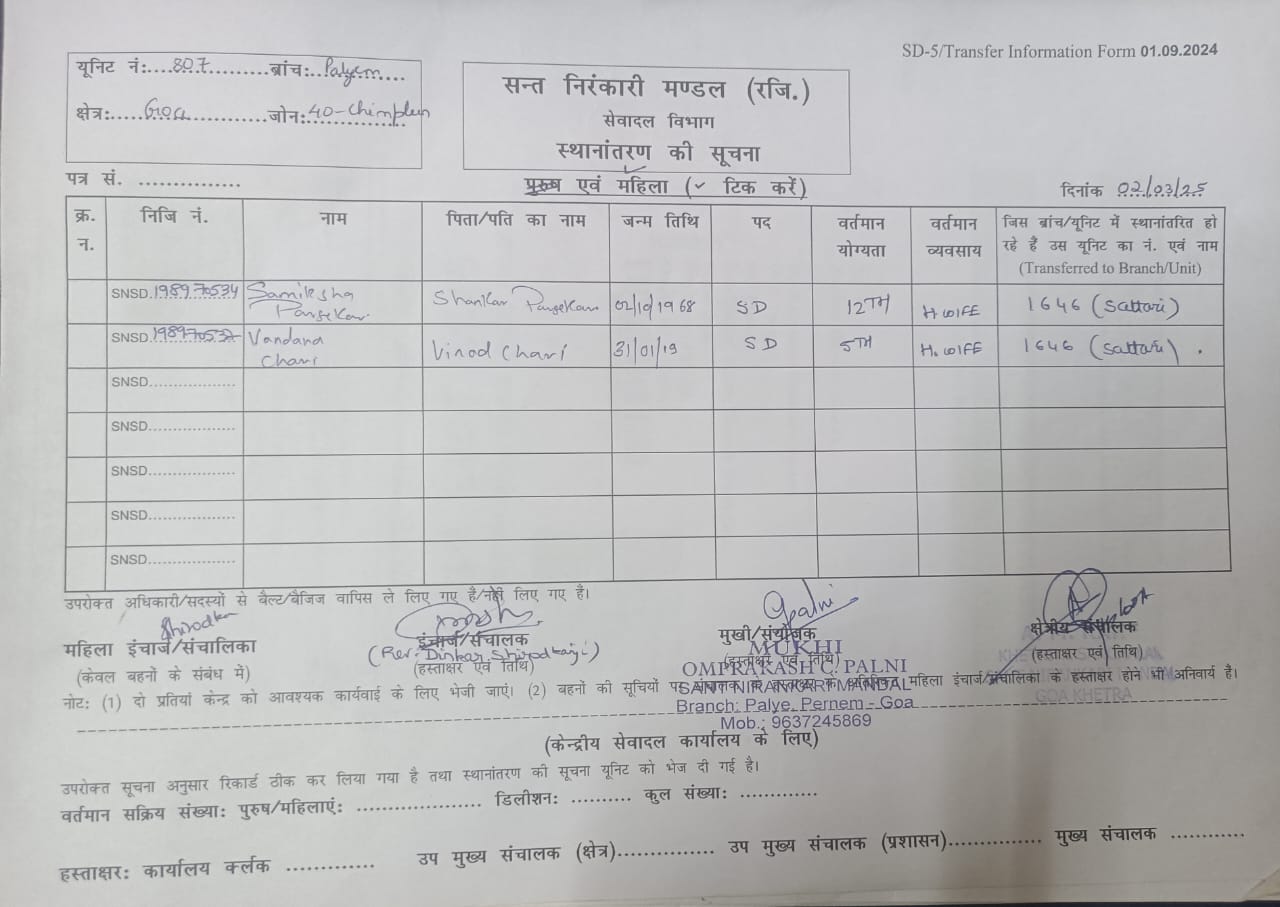 SD-5/Transfer Information Form 01.09.2024
यूनिट नं:....807.........ब्रांच:..Palyem....
क्षेत्र:.....Goa..............जोन:40-Chimplun
सन्त निरंकारी मण्डल (रजि.)
सेवादल विभाग
स्थानांतरण की सूचना
पत्र सं. ...............
पुरुष एवं महिला (✓ टिक करें)
दिनांक 02/03/25
क्र. न. निजि नं. नाम पिता/पति का नाम जन्म तिथि पद वर्तमान योग्यता वर्तमान व्यवसाय जिस ब्रांच/यूनिट में स्थानांतरित हो रहे हैं उस यूनिट का नं. एवं नाम (Transferred to Branch/Unit)
SNSD.198970534 Samiksha Parsekar Shankar Parsekar 02/10/1968 SD 12TH H WIFE 1646 (Sattari)
SNSD.19897053 Vandana Chari Vinod Chari 31/01/19 SD 5TH H. WIFE 1646 (Sattari) .
SNSD..................
SNSD..................
SNSD..................
SNSD..................
SNSD..................
उपरोक्त अधिकारी/सदस्यों से बैल्ट/बैजिज वापिस ले लिए गए हैं/नहीं लिए गए है।
Shirodkar
Palni
महिला इंचार्ज/संचालिका
इंचार्ज/संचालक
मुखी/संयोजक
क्षेत्रीय संचालक
(केवल बहनों के संबंध में)
(Rev. Dinkar Shirodkarji)
(हस्ताक्षर एवं तिथि)
(हस्ताक्षर एवं तिथि)
(हस्ताक्षर एवं तिथि)
MUKHI
OMPRAKASH C. PALNI
SANT NIRANKARI MANDAL
Branch: Palye, Pernem - Goa
Mob.: 9637245869
GOA KHETRA
नोट: (1) दो प्रतियां केन्द्र को आवश्यक कार्यवाई के लिए भेजी जाएं। (2) बहनों की सूचियों पर महिला इंचार्ज/संचालिका के हस्ताक्षर होने भी अनिवार्य है।
(केन्द्रीय सेवादल कार्यालय के लिए)
उपरोक्त सूचना अनुसार रिकार्ड ठीक कर लिया गया है तथा स्थानांतरण की सूचना यूनिट को भेज दी गई है।
वर्तमान सक्रिय संख्या: पुरुष/महिलाएं: .................... डिलीशन: .......... कुल संख्या: .............
हस्ताक्षर: कार्यालय क्लर्क .............. उप मुख्य संचालक (क्षेत्र)............... उप मुख्य संचालक (प्रशासन)............... मुख्य संचालक ............